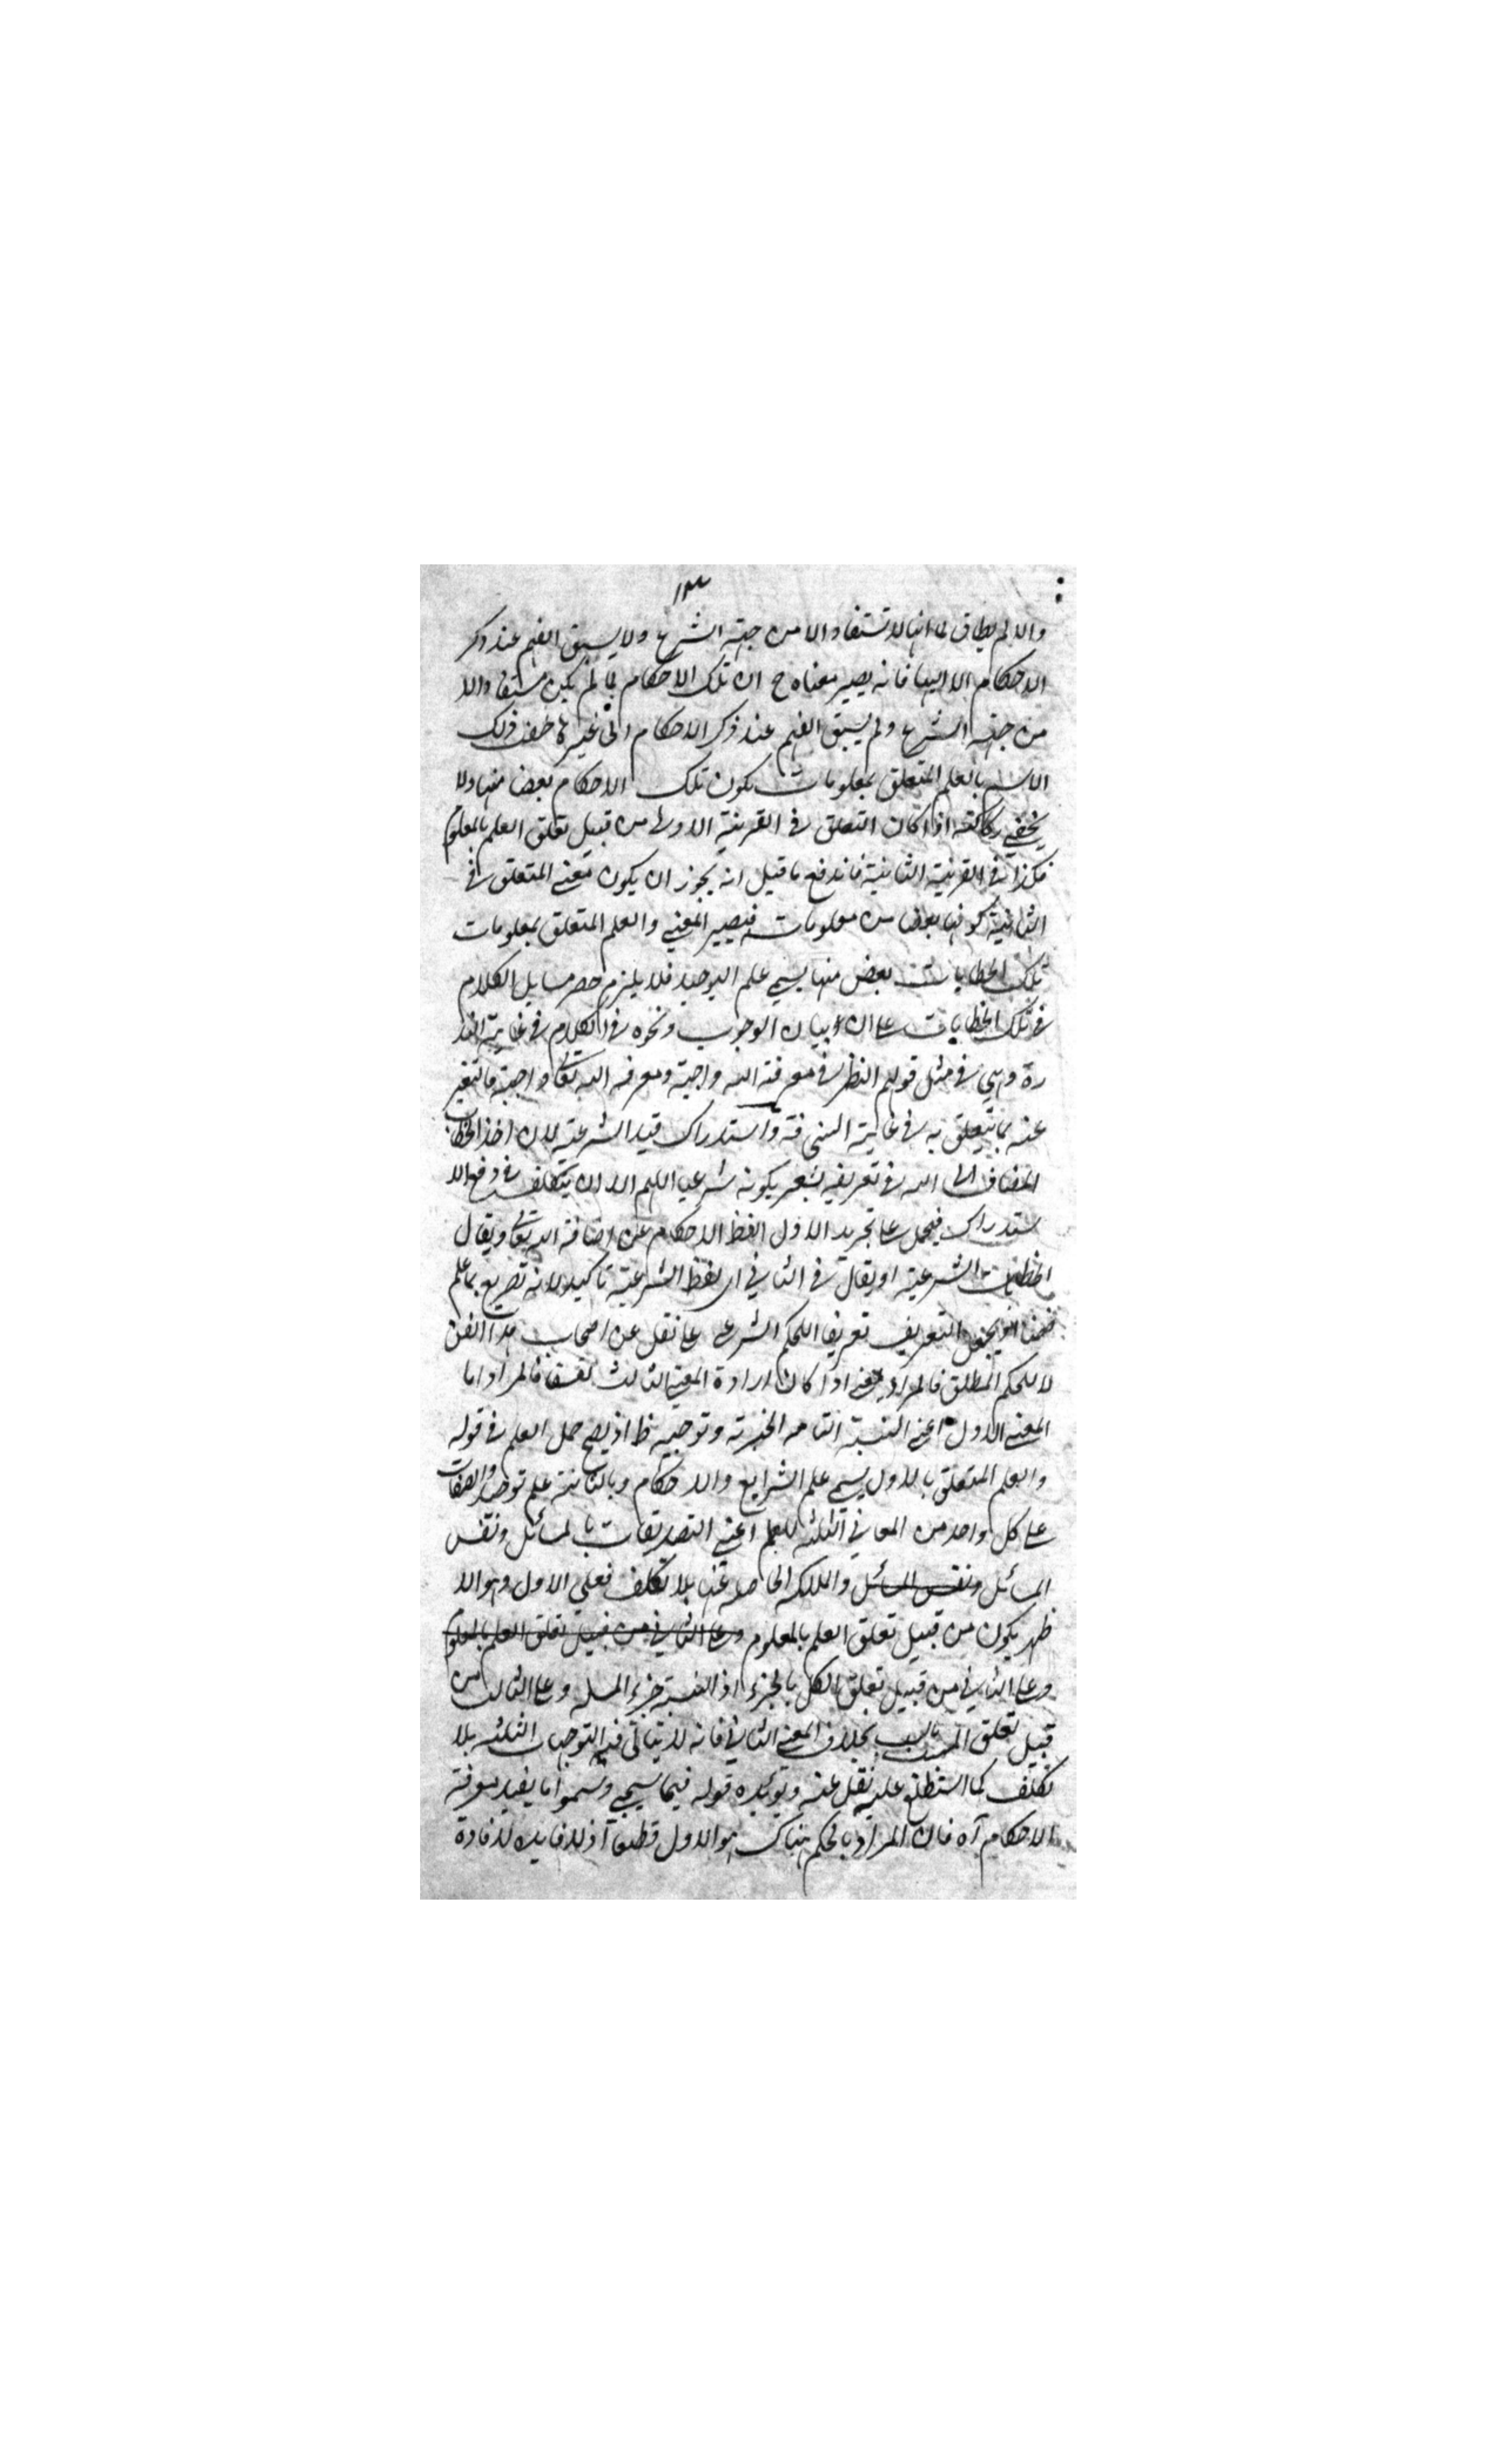 ١٣
والا لم يطابق لما انها لا تستفاد الا من جهة الشرع ولا يسبق الفهم عند ذكر
الاحكام الا اليها فانه يصير معناه ح ان تلك الاحكام لما لم يكن مستفادا الا
من جهة الشرع ولم يسبق الفهم عند ذكر الاحكام الى غيرها خص ذلك
الاسم بالعلم المتعلق بمعلومات يكون تلك الاحكام بعضا منها ولا
يخفى ركاكته اذا كان التعلق في القرينة الاولى من قبيل تعلق العلم بالمعلوم
فكذا في القرينة الثانية فاندفع ما قيل انه يجوز ان يكون معنى المتعلق في
الثانية كونها بعضا من معلومات فيصير المعنى والعلم المتعلق بمعلومات
تلك الخطابات بعض منها يسمى علم التوحيد فلا يلزم حصر مسايل الكلام
في تلك الخطابات على ان بيان الوجوب ونحوه في الكلام في غاية الند
رة وهي في مثل قولهم النظر في معرفة الله واجبة ومعرفة الله تعالى واجبة فالتعبير
عنه بما يتعلق به في غاية السخافة واستدراك قيد الشرعية لان اخذ الخطاب
المضاف الى الله في تعريفه يشعر بكونه شرعيا اللهم الا ان يتكلف في دفع الا
ستدراك فيحمل على تجريد الاول لفظ الاحكام عن اضافة الله تعالى ويقال
الخطابات الشرعية او يقال في الثاني ان لفظ الشرعية تاكيد لانه تصريح بما علم
ضمنا او يجعل التعريف تعريفا للحكم الشرعي على نقل عن اصحاب هذا الفن
لا للحكم المطلق فالمراد يعنى اذا كان ارادة المعنى الثالث تعسفا فالمراد اما
المعنى الاول اعنى النسبة التامة الخبرية وتوجيهه ظ اذ يصح حمل العلم في قوله
والعلم المتعلق بالاول يسمى علم الشرايع والاحكام وبالثانية علم توحيد والصفات
على كل واحد من المعاني الثلثة للعلم اعنى التصديقات بالمسائل ونفس
المسائل ونفس المسائل والملكة الحاصلة عنها بلا تكلف فعلى الاول وهو الا
ظهر يكون من قبيل تعلق العلم بالمعلوم وعلى الثاني من قبيل تعلق العلم بالمعلوم
وعلى الثاني من قبيل تعلق الكل بالجزء اذ النسبة جزء المسئلة وعلى الثالث من
قبيل تعلق المسبب بالسبب بخلاف المعنى الثاني فانه لا يتاتى فيه التوجيهات الثلثة بلا
تكلف كما استطلع عليه نقل عنه ويؤيده قوله فيما سيجئ وسموا ما يفيد معرفة
الاحكام آه فان المراد بالحكم هناك هو الاول قطعا اذ لا فايدة لافادة